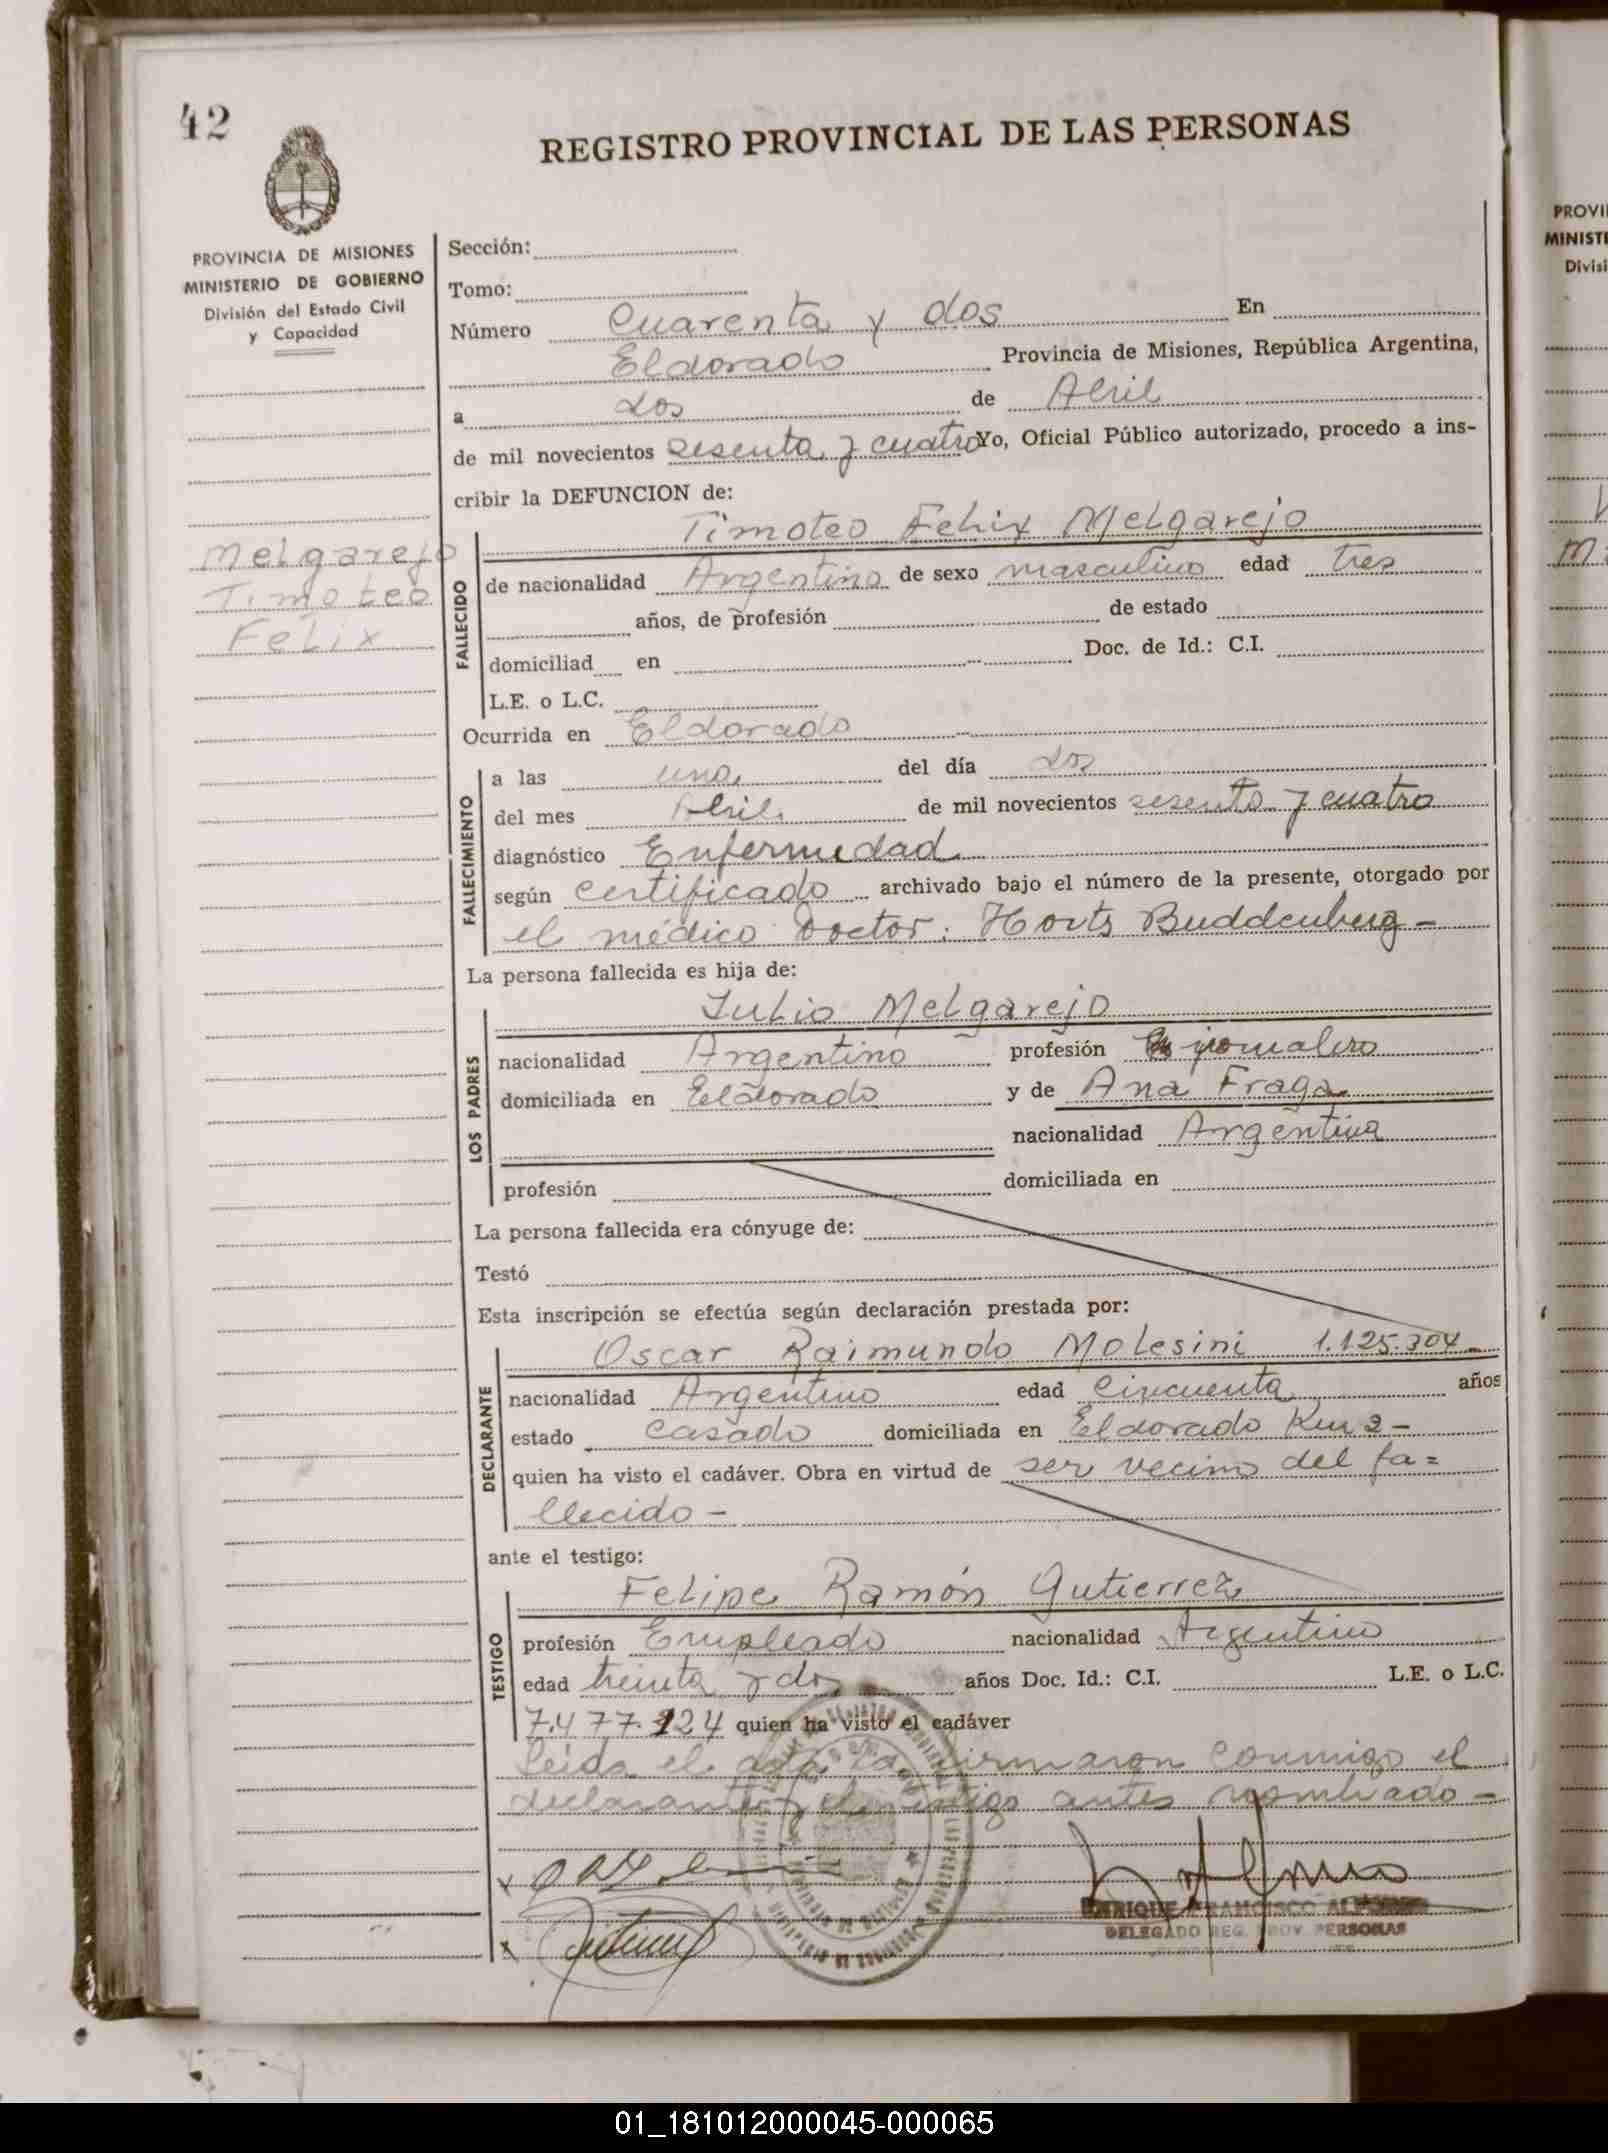 42
REGISTRO PROVINCIAL DE LAS PERSONAS
PROVINCIA DE MISIONES
MINISTERIO DE GOBIERNO
División del Estado Civil
y Capacidad
Melgarejo
Timoteo
Felix
Sección:
Tomo:
Número Cuarenta y dos En
Eldorado Provincia de Misiones, República Argentina,
a dos de Abril
de mil novecientos sesenta y cuatro Yo, Oficial Público autorizado, procedo a ins-
cribir la DEFUNCION de:
Timoteo Felix Melgarejo
FALLECIDO
de nacionalidad Argentino de sexo masculino edad tres
años, de profesión de estado
domiciliad en Doc. de Id.: C.I.
L.E. o L.C.
Ocurrida en Eldorado
FALLECIMIENTO
a las una del día dos
del mes Abril de mil novecientos sesenta y cuatro
diagnóstico Enfermedad
según certificado archivado bajo el número de la presente, otorgado por
el médico Doctor: Horts Buddenberg -
La persona fallecida es hija de:
Julio Melgarejo
LOS PADRES
nacionalidad Argentino profesión jornalero
domiciliada en Eldorado y de Ana Fraga
nacionalidad Argentina
profesión domiciliada en
La persona fallecida era cónyuge de:
Testó
Esta inscripción se efectúa según declaración prestada por:
Oscar Raimundo Molesini 1.125.304
DECLARANTE
nacionalidad Argentino edad Cincuenta años
estado Casado domiciliada en Eldorado Km 2 -
quien ha visto el cadáver. Obra en virtud de ser vecino del fa=
llecido -
ante el testigo:
Felipe Ramón Gutierrez
TESTIGO
profesión Empleado nacionalidad Argentino
edad treinta y dos años Doc. Id.: C.I. L.E. o L.C.
7.477.124 quien ha visto el cadáver
Leída el acta la firmaron conmigo el
declarante y el testigo antes nombrado -
ENRIQUE FRANCISCO
DELEGADO REG. PROV. PERSONAS
PROVI
MINISTE
Divisi
01_181012000045-000065